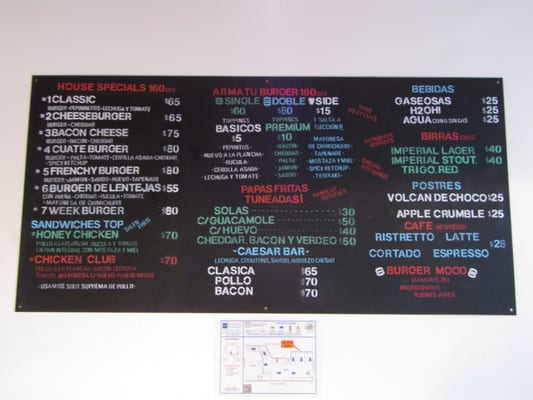 HOUSE SPECIALS 160GRS
1 CLASSIC $65
BURGER - PEPINITOS - LECHUGA Y TOMATE
2 CHEESEBURGER $65
BURGER - CHEDDAR
3 BACON CHEESE $75
BURGER - BACON - CHEDDAR
4 CUATE BURGER $80
BURGER - PALTA - TOMATE - CEBOLLA ASADA - CHEDDAR
- SPICY KETCHUP
5 FRENCHY BURGER $80
BURGER - JAMON - SAVORA - HUEVO - TAPENADE
6 BURGER DE LENTEJAS $55
CON AVENA - CHEDDAR - RUCULA - TOMATE
- MAYONESA DE CHIMICHURRI
7 WEEK BURGER $80
SANDWICHES TOP
HONEY CHICKEN $70
POLLO A LA PLANCHA, RUCULA Y TOMATE
EN PAN INTEGRAL CON MOSTAZA Y MIEL
CHICKEN CLUB $70
POLLO A LA PLANCHA, BACON, LECHUGA
- USAMOS SOLO SUPREMA DE POLLO -
ARMA TU BURGER 160 GRS
SINGLE DOBLE SIDE
$60 $80 $15
TOPPINGS TOPPINGS 1 SALSA A
BASICOS PREMIUM ELECCIÓN!
$5 $10
- PEPINITOS -
- HUEVO A LA PLANCHA -
- RUCULA -
CEBOLLA ASADA -
- LECHUGA Y TOMATE
- BACON -
- CHEDDAR -
- PALTA -
- JAMON -
- SAVORA -
MAYONESA
DE CHIMICHURRI
- TAPENADE
MOSTAZA Y MIEL
- SPICY KETCHUP
- TERIYAKI
PAPAS FRITAS
TUNEADAS!
SOLAS $30
C/GUACAMOLE $50
C/HUEVO $40
CHEDDAR, BACON Y VERDEO $50
- CAESAR BAR -
LECHUGA, CROUTONS, SAVORA, ADEREZO CAESAR
CLASICA $65
POLLO $70
BACON $70
BEBIDAS
GASEOSAS $25
H2OH! $25
AGUA CON O SIN GAS $25
BIRRAS
IMPERIAL LAGER $40
IMPERIAL STOUT, $40
TRIGO, RED
POSTRES
VOLCAN DE CHOCO $25
APPLE CRUMBLE $25
CAFE NESPRESSO
RISTRETTO LATTE
$28
CORTADO ESPRESSO
BURGER MOOD
MICROCENTRO
BUENOS AIRES